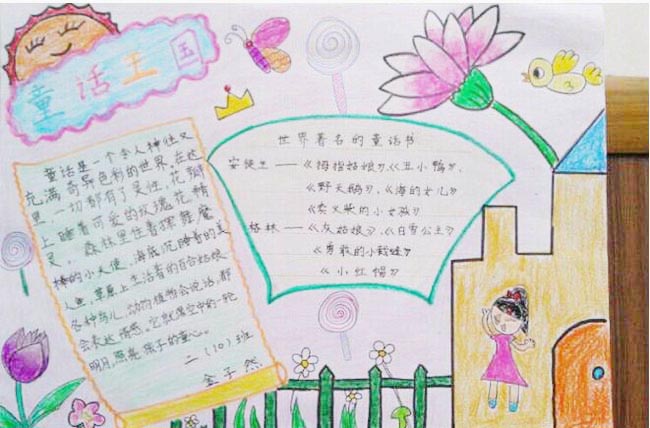 童话王国
童话是一个令人神往又
充满奇异色彩的世界。在这
里,一切都有了灵性,花瓣
上睡着可爱的玫瑰花精
灵,森林里住着挥舞魔
棒的小天使,海底沉睡着的美
人鱼,草原上生活着的百合姑娘……
各种鸟儿,动物植物会说话,都
会表达情感。它就像空中的一轮
明月,照亮孩子的童心。
二(10)班
金子然
世界著名的童话书
安徒生——《拇指姑娘》、《丑小鸭》、
《野天鹅》、《海的女儿》
《卖火柴的小女孩》
格林——《灰姑娘》、《白雪公主》
《勇敢的小裁缝》
《小红帽》